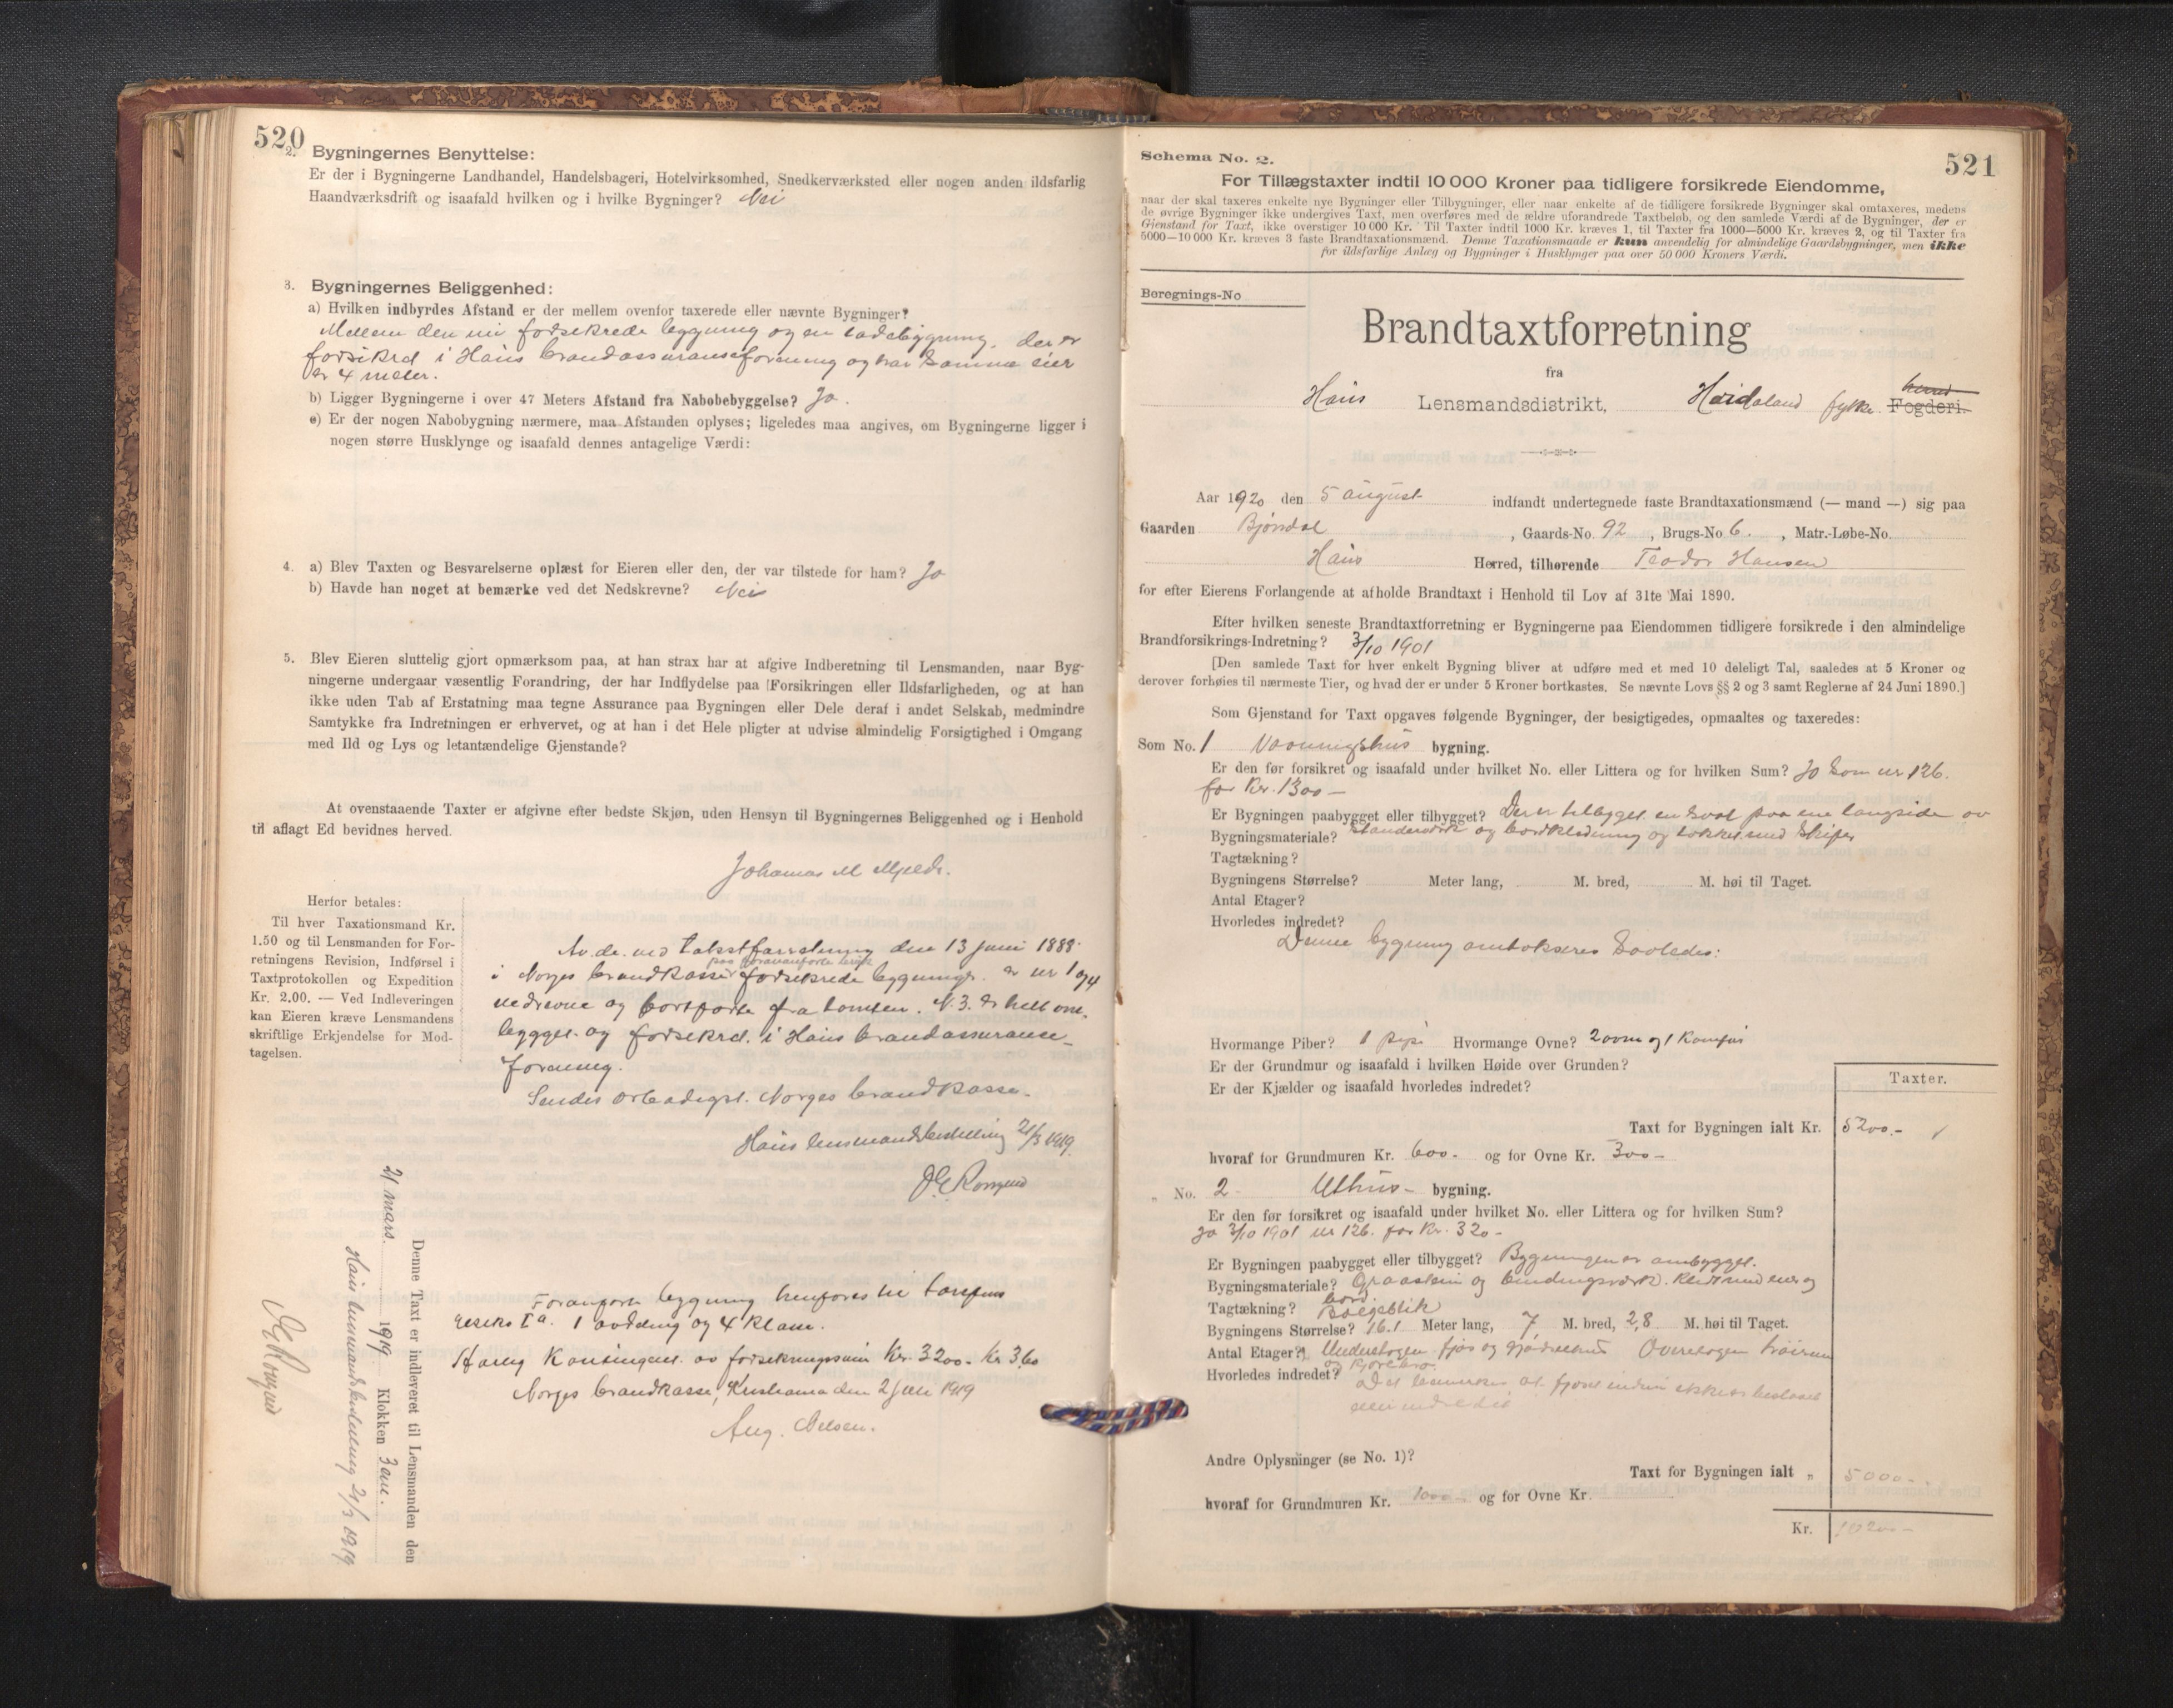 520
2. Bygningernes Benyttelse:
Er der i Bygningerne Landhandel, Handelsbageri, Hotelvirksomhed, Snedkerværksted eller nogen anden ildsfarlig
Haandværksdrift og isaafald hvilken og i hvilke Bygninger? Nei
3. Bygningernes Beliggenhed:
a) Hvilken indbyrdes Afstand er der mellem ovenfor taxerede eller nævnte Bygninger?
Mellem den nu forsekrede bygning og en ladebygning, der er
forsikred i Haus brandassuranseforening og har samme eier
er 4 meter.
b) Ligger Bygningerne i over 47 Meters Afstand fra Nabobebyggelse? Ja.
c) Er der nogen Nabobygning nærmere, maa Afstanden oplyses; ligeledes maa angives, om Bygningerne ligger i
nogen større Husklynge og isaafald dennes antagelige Værdi:
4. a) Blev Taxten og Besvarelserne oplæst for Eieren eller den, der var tilstede for ham? Ja
b) Havde han noget at bemærke ved det Nedskrevne? Nei
5. Blev Eieren sluttelig gjort opmærksom paa, at han strax har at afgive Indberetning til Lensmanden, naar Byg-
ningerne undergaar væsentlig Forandring, der har Indflydelse paa Forsikringen eller Ildsfarligheden, og at han
ikke uden Tab af Erstatning maa tegne Assurance paa Bygningen eller Dele deraf i andet Selskab, medmindre
Samtykke fra Indretningen er erhvervet, og at han i det Hele pligter at udvise almindelig Forsigtighed i Omgang
med Ild og Lys og letantændelige Gjenstande?
At ovenstaaende Taxter er afgivne efter bedste Skjøn, uden Hensyn til Bygningernes Beliggenhed og i Henhold
til aflagt Ed bevidnes herved.
Johannes M Mjelde.
Herfor betales:
Til hver Taxationsmand Kr.
1.50 og til Lensmanden for For-
retningens Revision, Indførsel i
Taxtprotokollen og Expedition
Kr. 2.00. — Ved Indleveringen
kan Eieren kræve Lensmandens
skriftlige Erkjendelse for Mod-
tagelsen.
Av de ved takstforretning den 13 juni 1888
paa forananførte bruk
i Norges brandkasse forsekrede bygninger er nr 1 og 4
nedrevne og bortførte fra tomten. N. 3. er helt om-
bygget og forsekred i Haus brandassuranse-
forening.
Sendes Norges brandkasse.
Haus lensmandsbestilling 21/3 1919.
Foranførte bygning henføres til tariffens
1 avdeling og 4 klasse.
Aarlig Kontingent av forsekringssum Kr. 3200.- Kr 3,60
Norges brandkasse, Kristiania den 2 juli 1919
Aug. Nelsen.
Denne Taxt er indleveret til Lensmanden den
21 mars. 1919 Klokken 3 em.
Haus lensmandsbestilling 21/3 1919
521
Schema No. 2.
For Tillægstaxter indtil 10 000 Kroner paa tidligere forsikrede Eiendomme,
naar der skal taxeres enkelte nye Bygninger eller Tilbygninger, eller naar enkelte af de tidligere forsikrede Bygninger skal omtaxeres, medens
de øvrige Bygninger ikke undergives Taxt, men overføres med de ældre uforandrede Taxtbeløb, og den samlede Værdi af de Bygninger, der er
Gjenstand for Taxt, ikke overstiger 10 000 Kr. Til Taxter indtil 1000 Kr. kræves 1, til Taxter fra 1000—5000 Kr. kræves 2, og til Taxter fra
5000—10 000 Kr. kræves 3 faste Brandtaxationsmænd. Denne Taxationsmaade er kun anvendelig for almindelige Gaardsbygninger, men ikke
for ildsfarlige Anlæg og Bygninger i Husklynger paa over 50 000 Kroners Værdi.
Beregnings-No
Brandtaxtforretning
fra
Haus Lensmandsdistrikt, Hordaland fylke Fogderi.
Aar 1920 den 5 august indfandt undertegnede faste Brandtaxationsmænd (— mand —) sig paa
Gaarden Bjørndal, Gaards-No. 92, Brugs-No 6., Matr.-Løbe-No.
Haus Herred, tilhørende Teodor Hansen
for efter Eierens Forlangende at afholde Brandtaxt i Henhold til Lov af 31te Mai 1890.
Efter hvilken seneste Brandtaxtforretning er Bygningerne paa Eiendommen tidligere forsikrede i den almindelige
Brandforsikrings-Indretning? 3/10 1901
[Den samlede Taxt for hver enkelt Bygning bliver at udføre med et med 10 deleligt Tal, saaledes at 5 Kroner og
derover forhøies til nærmeste Tier, og hvad der er under 5 Kroner bortkastes. Se nævnte Lovs §§ 2 og 3 samt Reglerne af 24 Juni 1890.]
Som Gjenstand for Taxt opgaves følgende Bygninger, der besigtigedes, opmaaltes og taxeredes:
Som No. 1 Vaaningshus bygning.
Er den før forsikret og isaafald under hvilket No. eller Littera og for hvilken Sum? Ja som nr 126.
for Kr. 1300 —
Er Bygningen paabygget eller tilbygget? Der er tilbygget en sval paa ene langside av
Bygningsmateriale? standerverk og bordklædning og tækket med skifer
Tagtækning?
Bygningens Størrelse? Meter lang, M. bred, M. høi til Taget.
Antal Etager?
Hvorledes indredet?
Denne bygning omtakseres saaledes:
Hvormange Piber? 1 pipe Hvormange Ovne? 2 ovne og 1 Komfur
Er der Grundmur og isaafald i hvilken Høide over Grunden?
Er der Kjælder og isaafald hvorledes indredet?
Taxter.
Taxt for Bygningen ialt Kr. 5200.-
hvoraf for Grundmuren Kr. 600.- og for Ovne Kr. 300 -
" No. 2 Uthus- bygning.
Er den før forsikret og isaafald under hvilket No. eller Littera og for hvilken Sum?
Ja 3/10 1901 nr 126. for Kr. 320 -
Er Bygningen paabygget eller tilbygget? Bygningen er ombygget.
Bygningsmateriale? Graasten og bindingsverk.
bord.
Tagtækning? Bølgeblik
Bygningens Størrelse? 16.1 Meter lang, 7 M. bred, 2,8 M. høi til Taget.
Antal Etager? Underetagen fjøs og gjødselhus Overetagen høirum
Hvorledes indredet? og kjørebro.
Det bemerkes at fjøset endnu ikke er
Andre Oplysninger (se No. 1)?
Taxt for Bygningen ialt " 5000.-
hvoraf for Grundmuren Kr. 1000 - og for Ovne Kr.
Kr. 10200 -